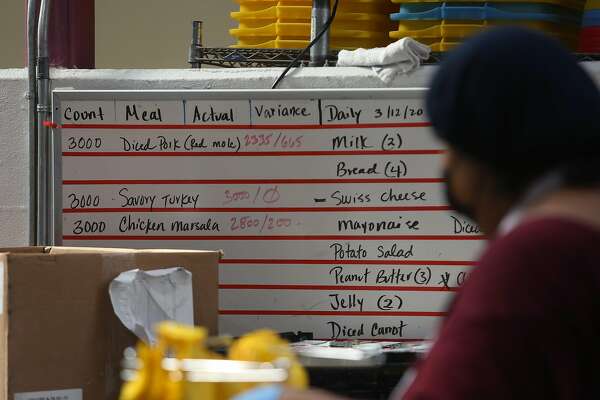 Count Meal Actual Variance Daily 3/12/20
3000 Diced Pork (Red mole) 2335/665 Milk (2)
Bread (4)
3000 Savory Turkey 3000/0 - Swiss cheese
3000 Chicken marsala 2800/200 mayonaise Diced
Potato Salad
Peanut Butter (3)
Jelly (2)
Diced Carrot